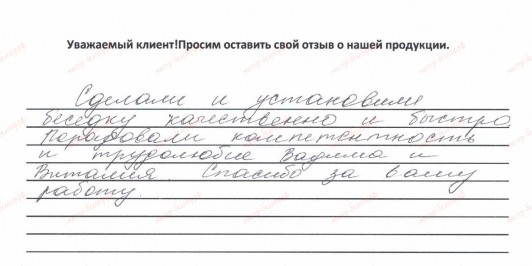 Уважаемый клиент!Просим оставить свой отзыв о нашей продукции.
Сделали и установили
беседку качественно и быстро
Порадовали компетентность
и трудолюбие Вадима и
Виталия. Спасибо за вашу
работу.